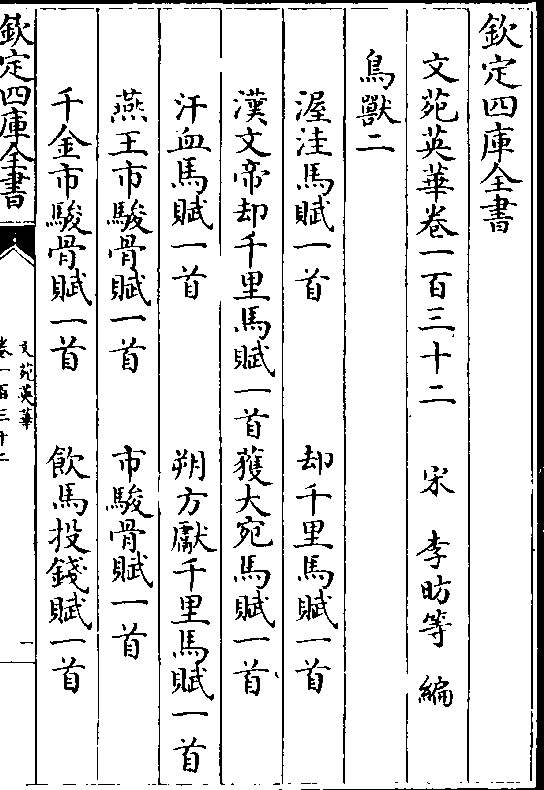 欽定四庫全書
文苑英華卷一百三十二　宋　李昉等　編
鳥獸二
渥洼馬賦一首　却千里馬賦一首
漢文帝却千里馬賦一首　獲大宛馬賦一首
汗血馬賦一首　朔方獻千里馬賦一首
燕王市駿骨賦一首　市駿骨賦一首
千金市駿骨賦一首　飲馬投錢賦一首
欽定四庫全書
文苑英華
卷一百三十二
一